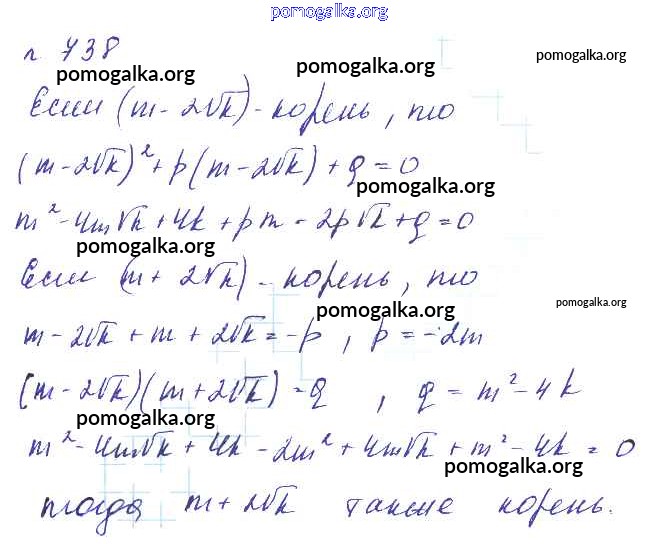 pomogalka.org
n. 738
pomogalka.org pomogalka.org
Если (m - 2√k) - корень, то
(m - 2√k)² + p(m - 2√k) + q = 0
pomogalka.org
m² - 4m√k + 4k + pm - 2p√k + q = 0
pomogalka.org
Если (m + 2√k) - корень, то
pomogalka.org
pomogalka.org
m - 2√k + m + 2√k = -p, p = -2m
(m - 2√k)(m + 2√k) = q, q = m² - 4k
pomogalka.org
m² - 4m√k + 4k - 2m² + 4m√k + m² - 4k = 0
pomogalka.org
тогда m + 2√k также корень.